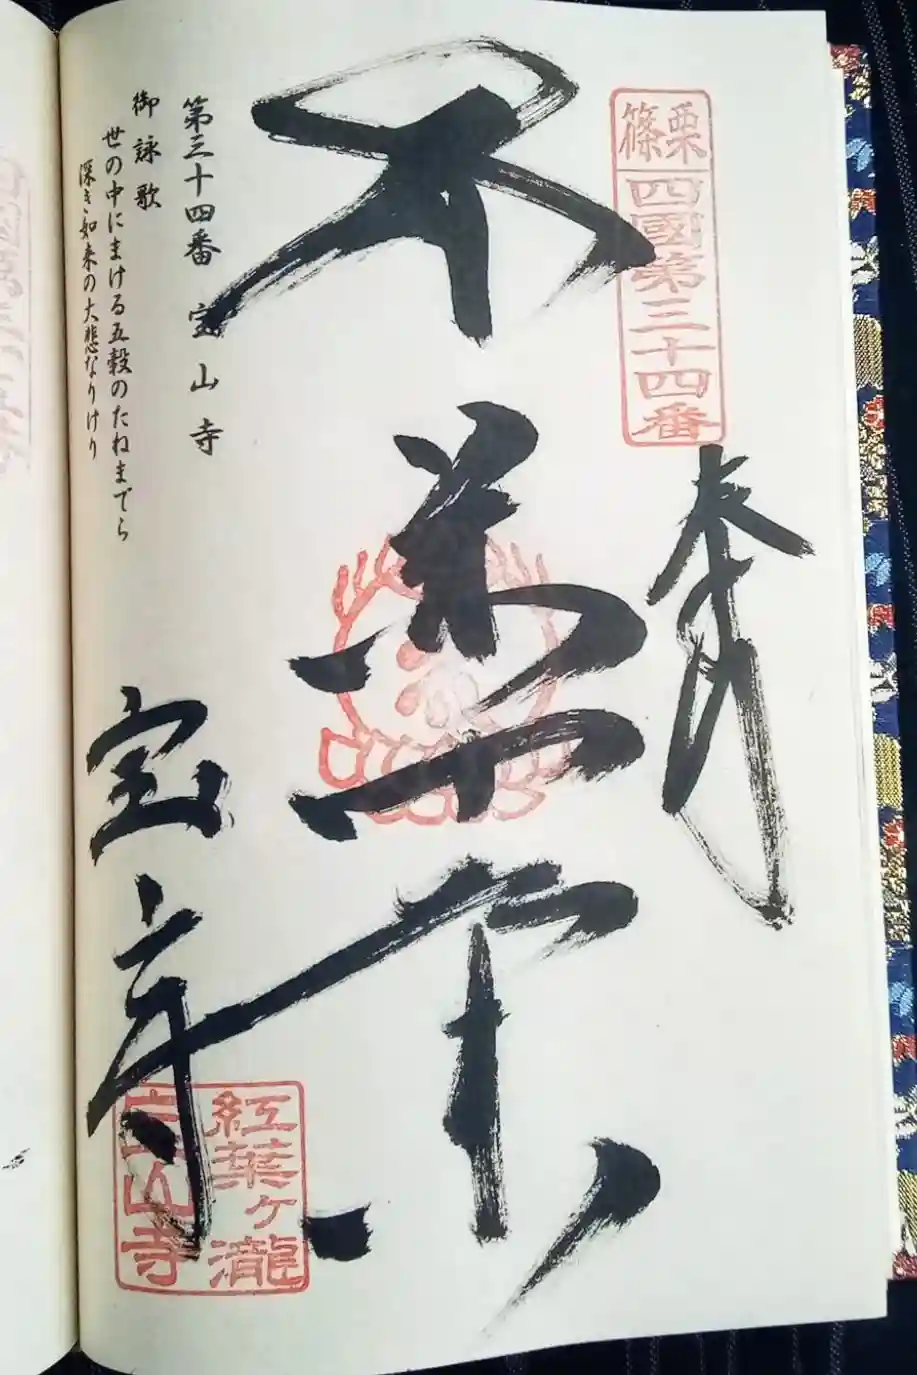 篠栗
四國第三十四番
奉拝
第三十四番 宝山寺
御詠歌
世の中にまける五穀のたねまでら
深き如来の大悲なりけり
宝山寺
紅葉ヶ瀧
宝山寺